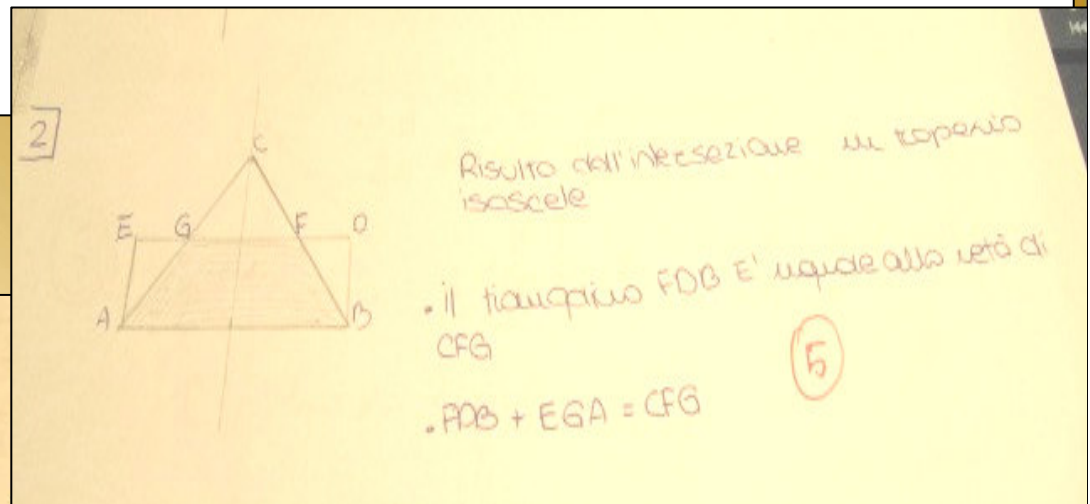 2
C
E G F D
A B
Risulto dall'intersezione un trapezio
isoscele
. il triangolino FDB E' uguale alla metà di
CFG
5
. FDB + EGA = CFG